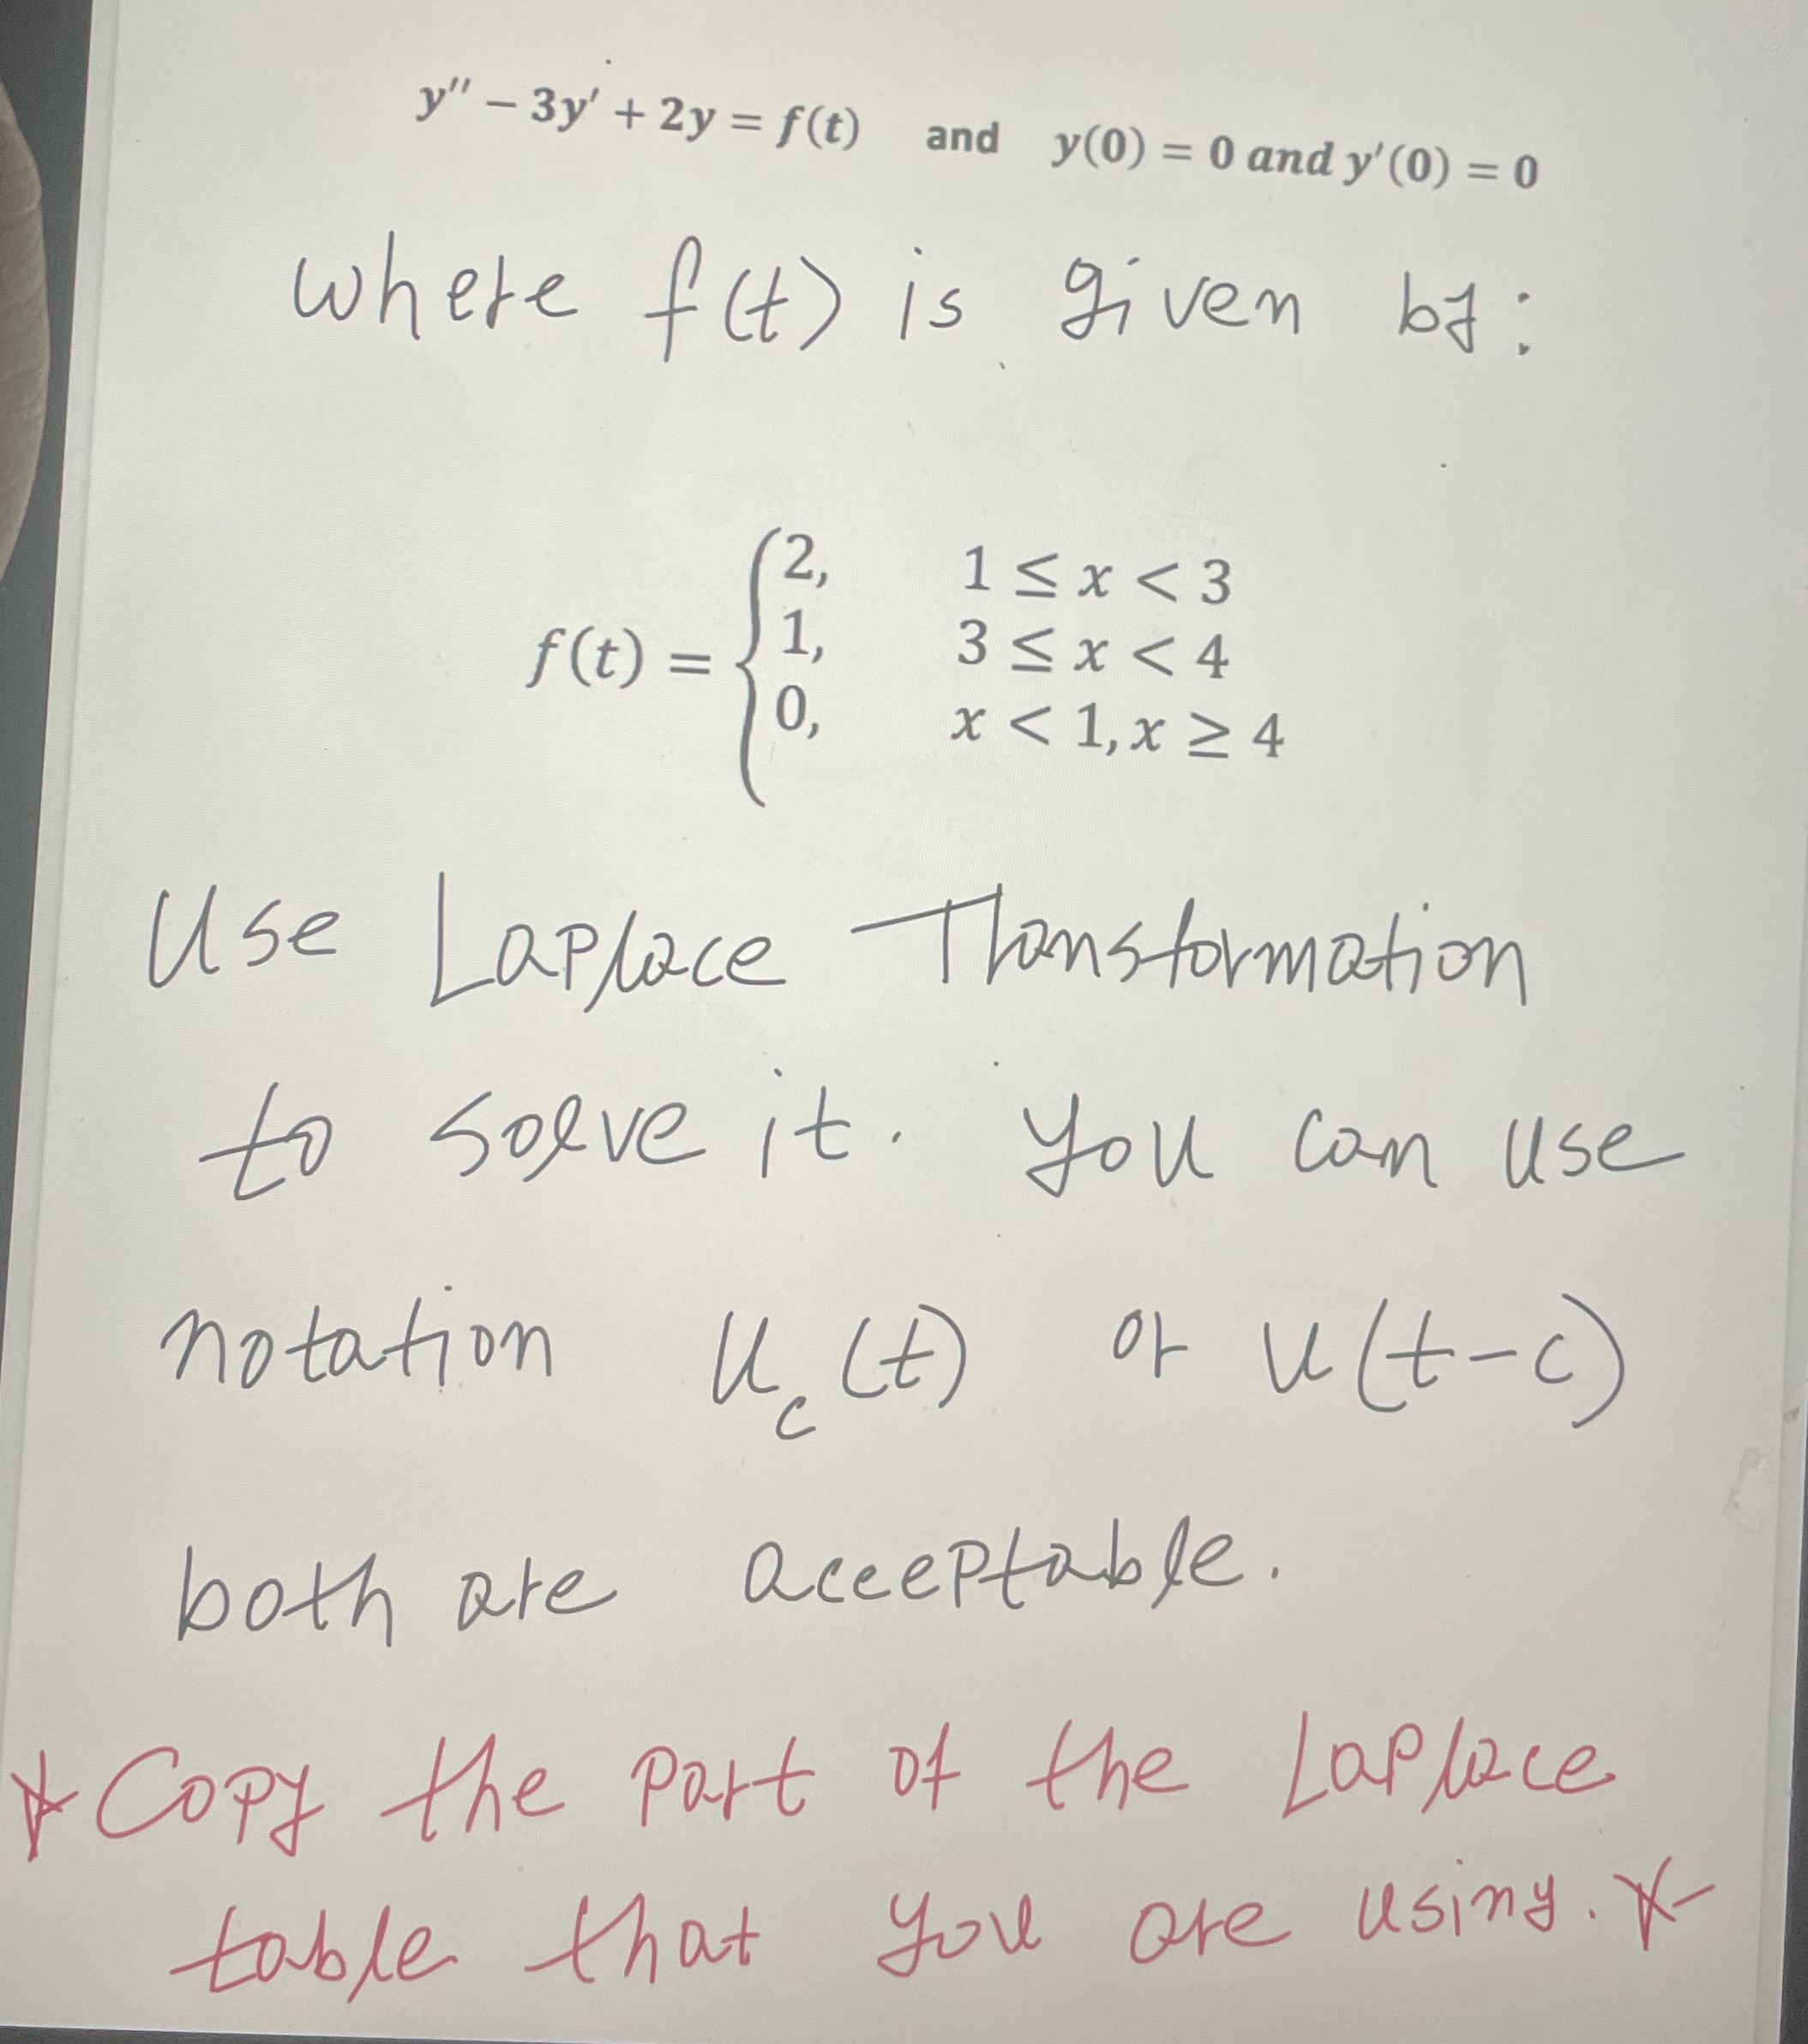 y'' − 3y' + 2y = f(t) and y(0) = 0 and y'(0) = 0
where f(t) is given by:
f(t) = { 2, 1 ≤ x < 3
1, 3 ≤ x < 4
0, x < 1, x ≥ 4
Use Laplace Transformation
to solve it. You can use
notation u_c(t) or u(t-c)
both are acceptable.
* Copy the part of the Laplace
table that you are using. *